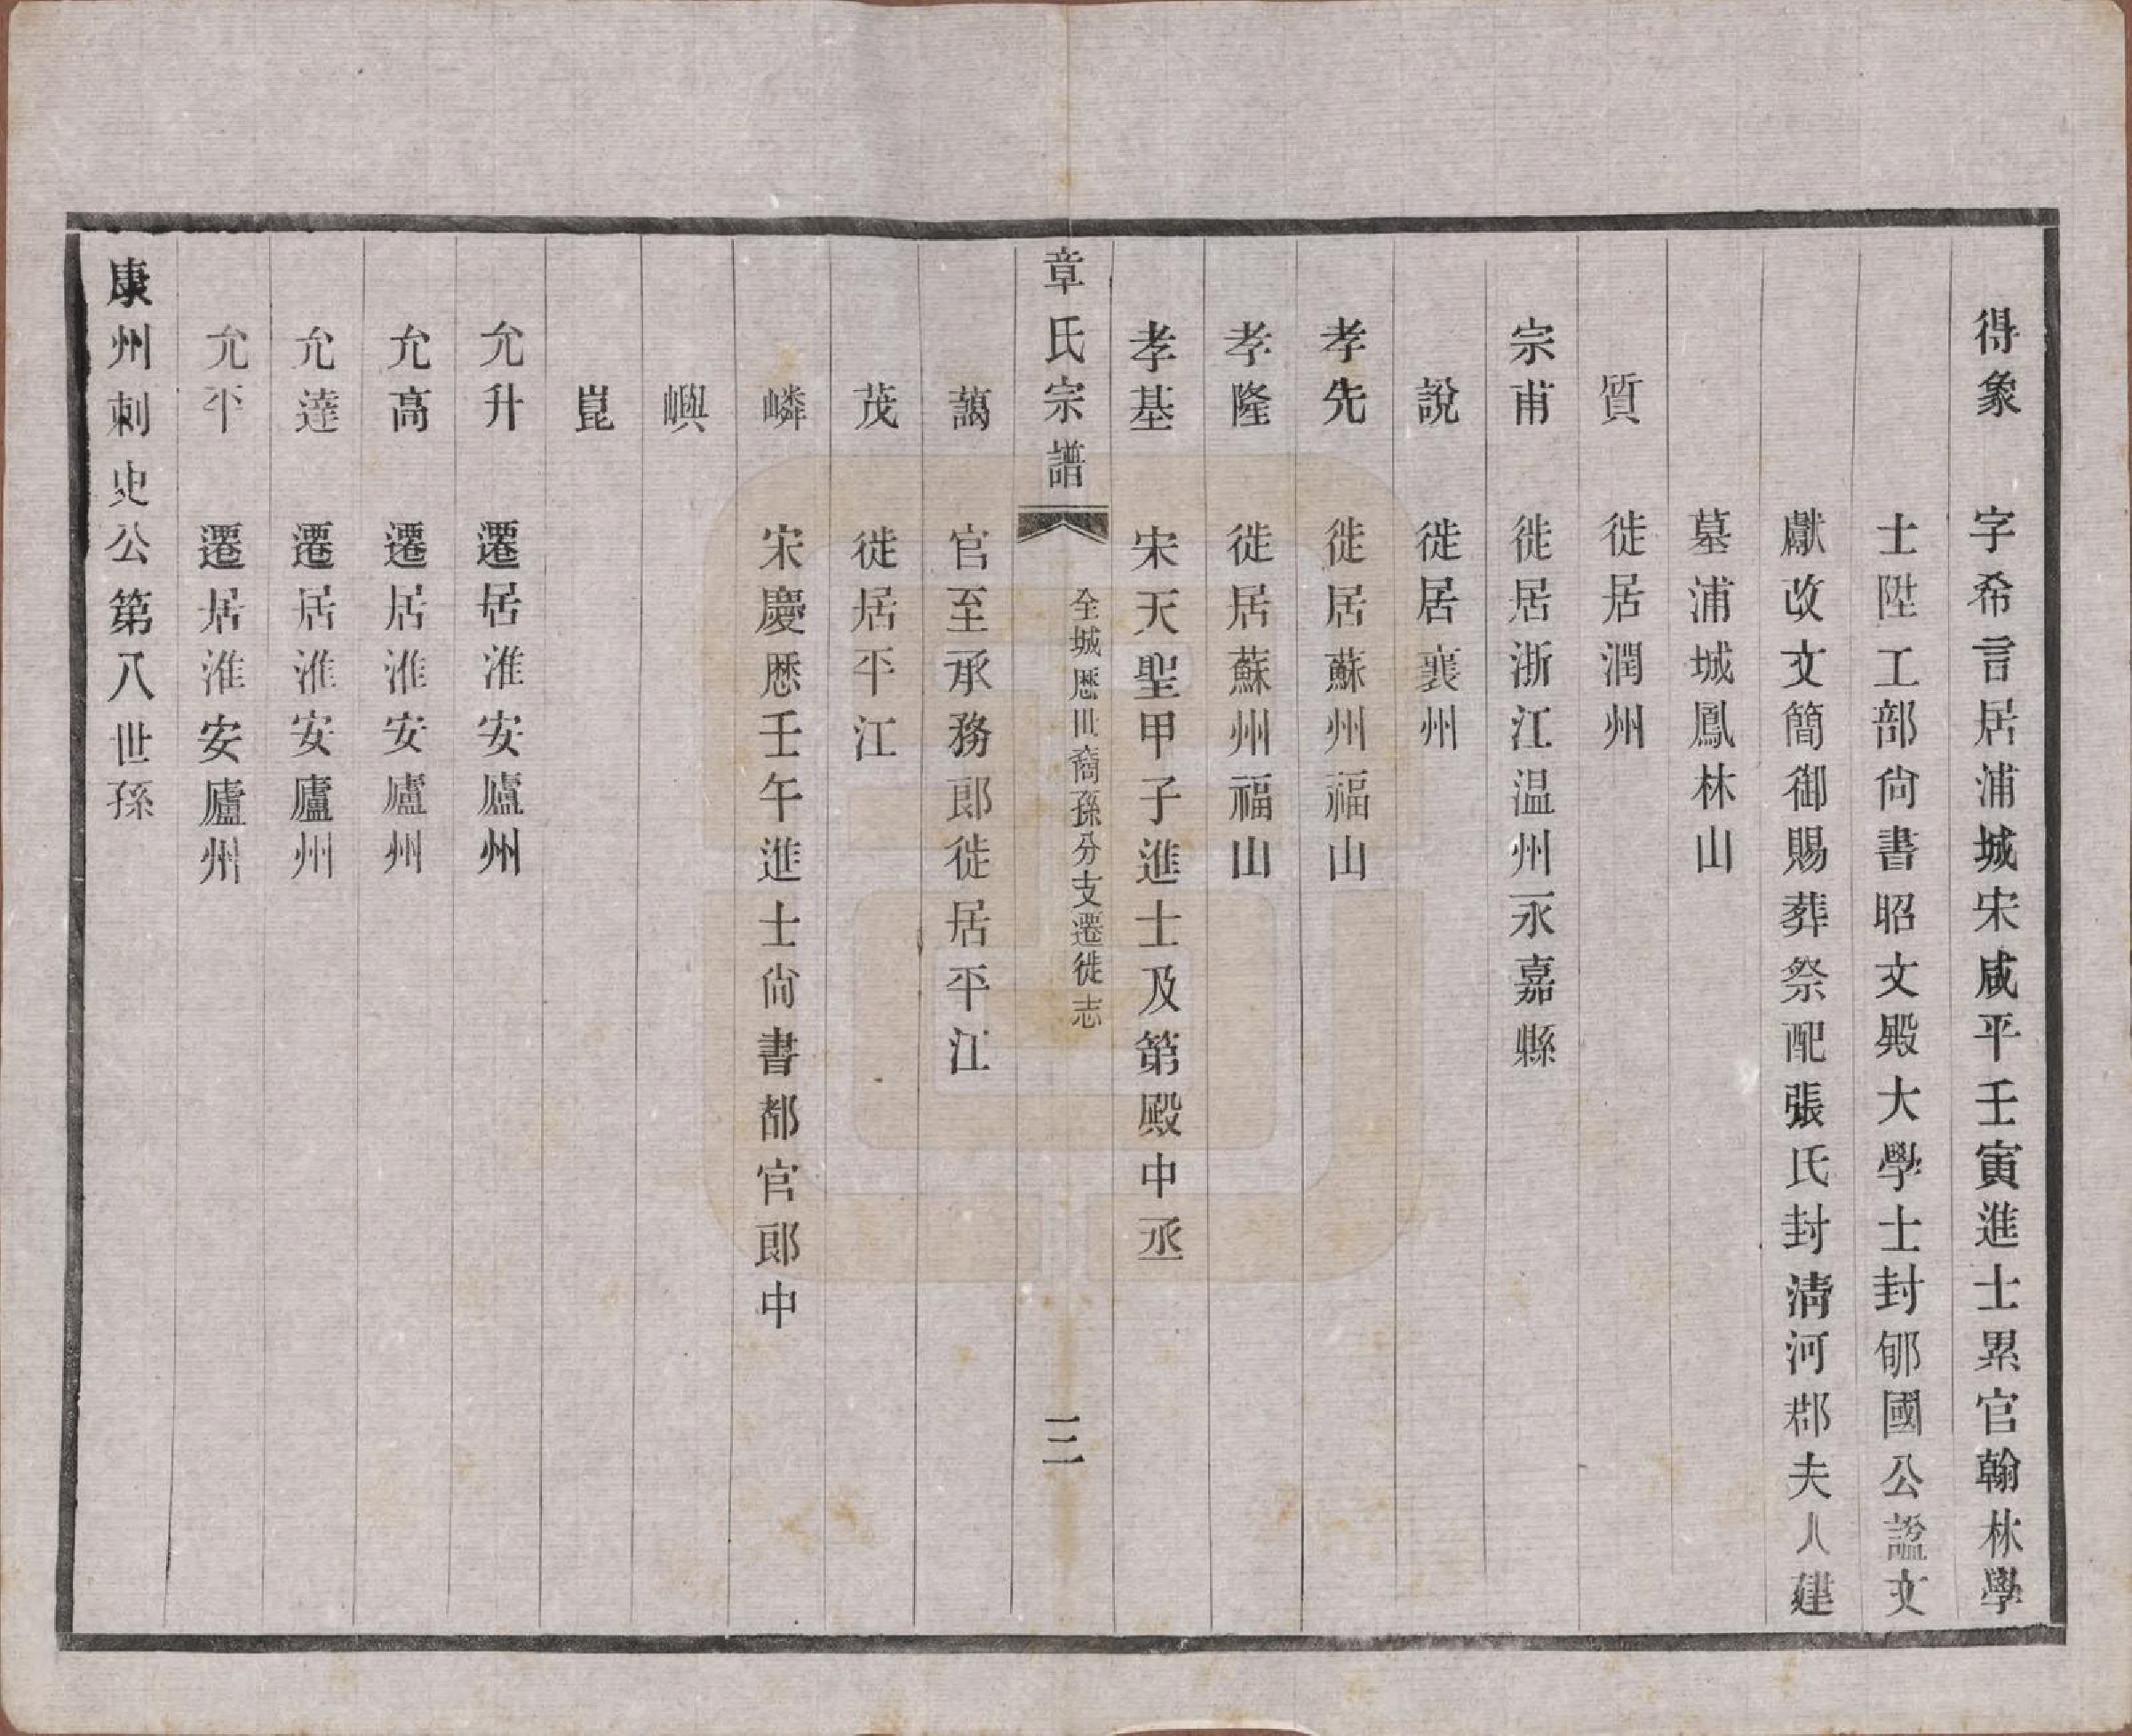 得象 字希言居浦城宋咸平壬寅進士累官翰林學
士陞工部尙書昭文殿大學士封郇國公諡文
獻改文簡御賜葬祭配張氏封淸河郡夫人建
墓浦城鳳林山
質 徙居潤州
宗甫 徙居浙江温州永嘉縣
說 徙居襄州
孝先 徙居蘇州福山
孝隆 徙居蘇州福山
孝基 宋天聖甲子進士及第殿中丞
章氏宗譜 全城歷世裔孫分支遷徙志 三
藹 官至承務郎徙居平江
茂 徙居平江
嶙 宋慶厯壬午進士尙書都官郎中
嶼
崑
允升 遷居淮安廬州
允高 遷居淮安廬州
允達 遷居淮安廬州
允平 遷居淮安廬州
康州刺史公第八世孫